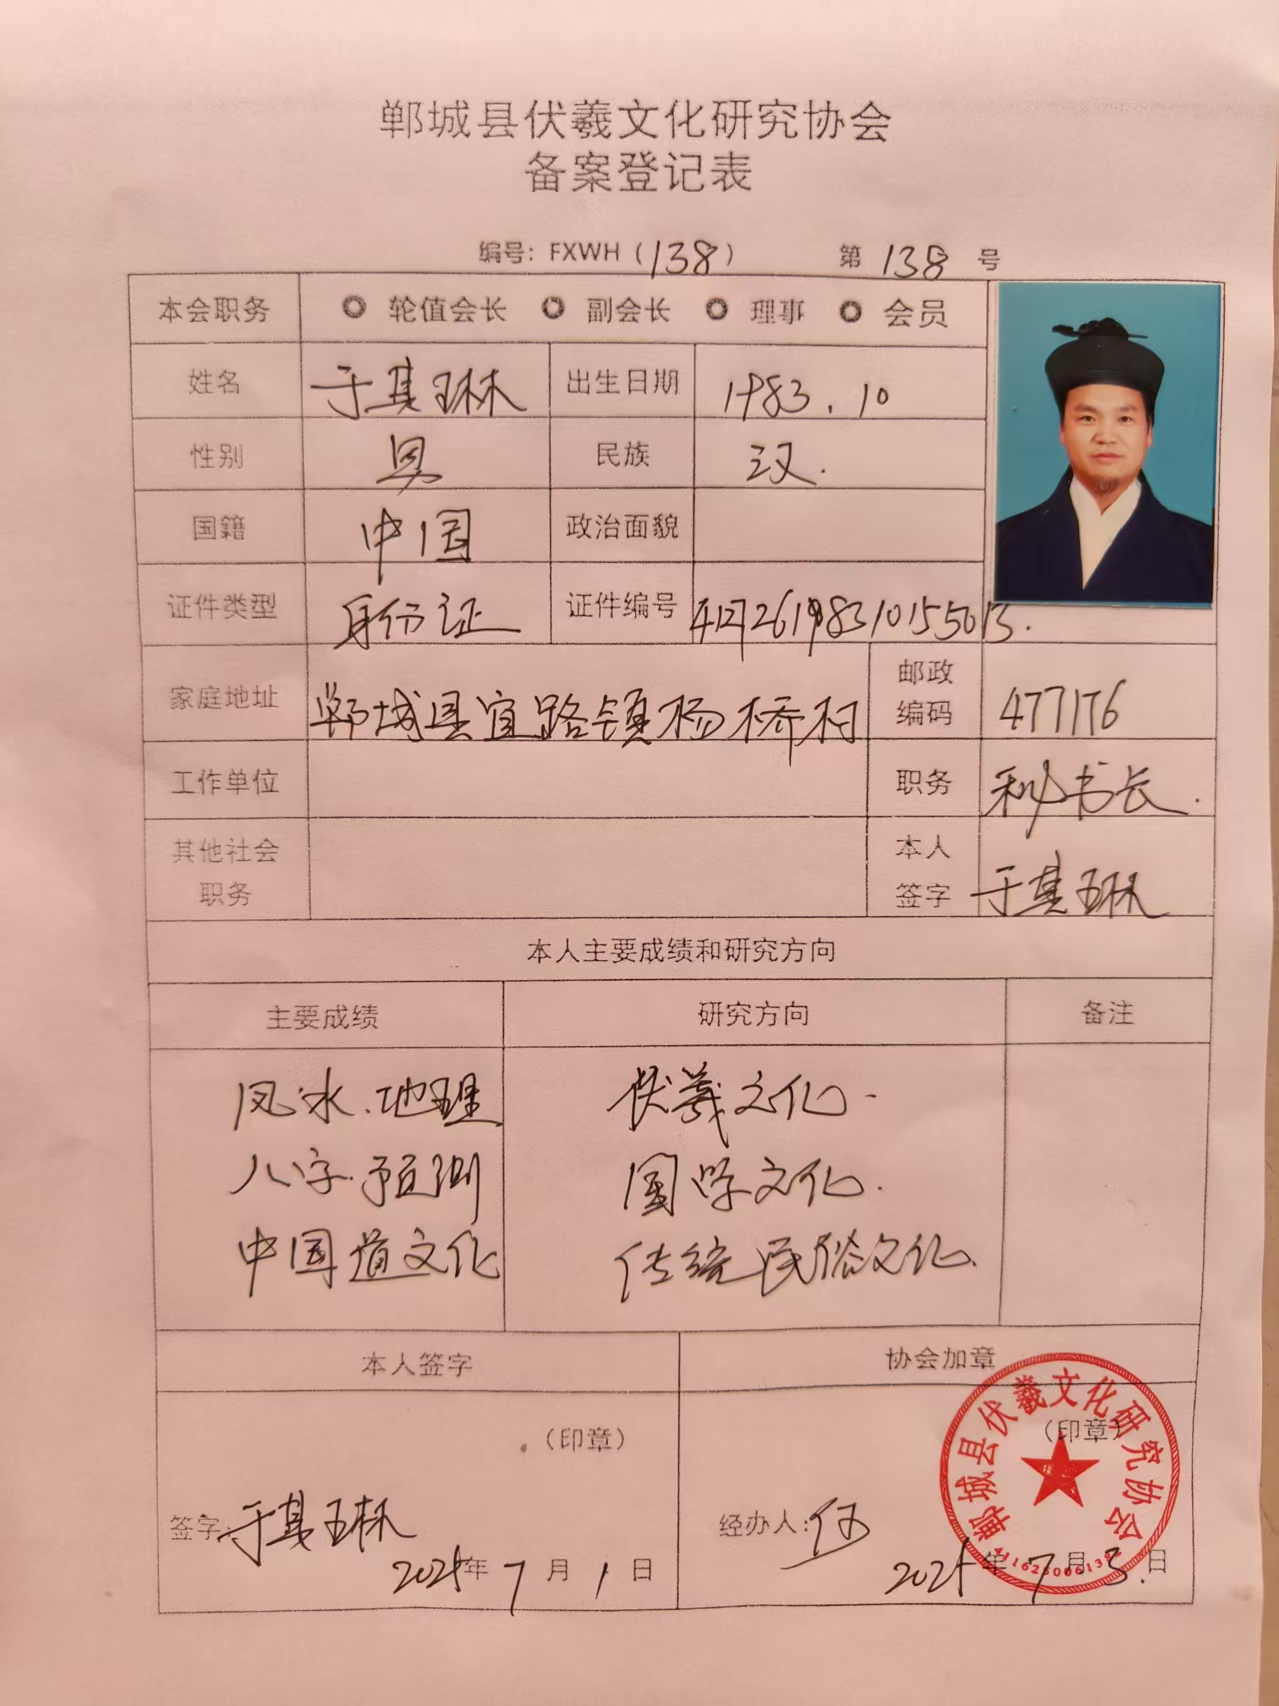 郸城县伏羲文化研究协会
备案登记表
编号：FXWH（138） 第 138 号
本会职务 轮值会长 副会长 理事 会员
姓名 于其琳 出生日期 1983.10
性别 男 民族 汉.
国籍 中国 政治面貌
证件类型 身份证 证件编号
家庭地址 郸城县宜路镇杨桥村 邮政编码 477176
工作单位 职务 秘书长.
其他社会职务 本人签字 于其琳
本人主要成绩和研究方向
主要成绩 研究方向 备注
风水.地理 伏羲文化.
八字.预测 国学文化.
中国道文化 传统民俗文化.
本人签字 协会加章
（印章） （印章）
签字: 于其琳 经办人:
2025年7月1日 2025年7月3日
郸城县伏羲文化研究协会